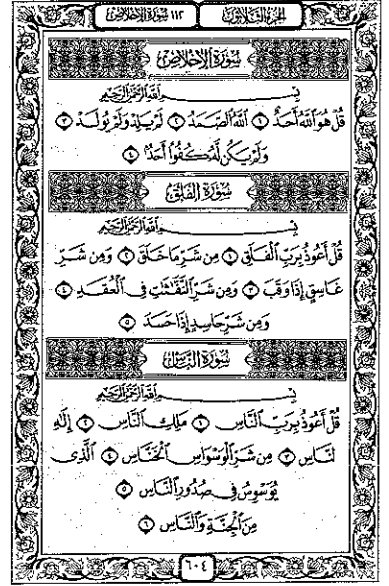 الجزء الثلاثون ١١٢ سورة الإخلاص
سُورَةُ الإِخْلَاصِ
بِسْمِ ٱللَّهِ ٱلرَّحْمَٰنِ ٱلرَّحِيمِ
قُلْ هُوَ ٱللَّهُ أَحَدٌ ١ ٱللَّهُ ٱلصَّمَدُ ٢ لَمْ يَلِدْ وَلَمْ يُولَدْ ٣
وَلَمْ يَكُن لَّهُۥ كُفُوًا أَحَدٌ ٤
سُورَةُ الْفَلَقِ
بِسْمِ ٱللَّهِ ٱلرَّحْمَٰنِ ٱلرَّحِيمِ
قُلْ أَعُوذُ بِرَبِّ ٱلْفَلَقِ ١ مِن شَرِّ مَا خَلَقَ ٢ وَمِن شَرِّ
غَاسِقٍ إِذَا وَقَبَ ٣ وَمِن شَرِّ ٱلنَّفَّٰثَٰتِ فِى ٱلْعُقَدِ ٤
وَمِن شَرِّ حَاسِدٍ إِذَا حَسَدَ ٥
سُورَةُ النَّاسِ
بِسْمِ ٱللَّهِ ٱلرَّحْمَٰنِ ٱلرَّحِيمِ
قُلْ أَعُوذُ بِرَبِّ ٱلنَّاسِ ١ مَلِكِ ٱلنَّاسِ ٢ إِلَٰهِ
ٱلنَّاسِ ٣ مِن شَرِّ ٱلْوَسْوَاسِ ٱلْخَنَّاسِ ٤ ٱلَّذِى
يُوَسْوِسُ فِى صُدُورِ ٱلنَّاسِ ٥
مِنَ ٱلْجِنَّةِ وَٱلنَّاسِ ٦
٦٠٤